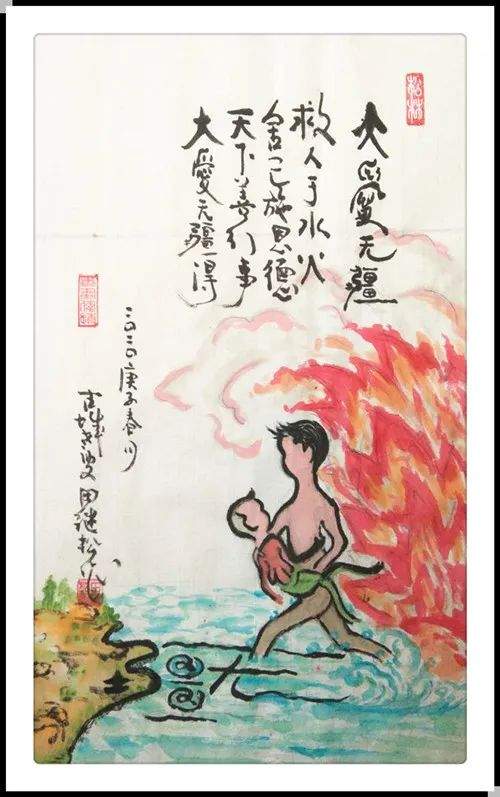 松林
大愛无疆
救人于水火
舍己施恩德
天下善行事
大愛无疆得
二〇二〇庚子春月
田继松作